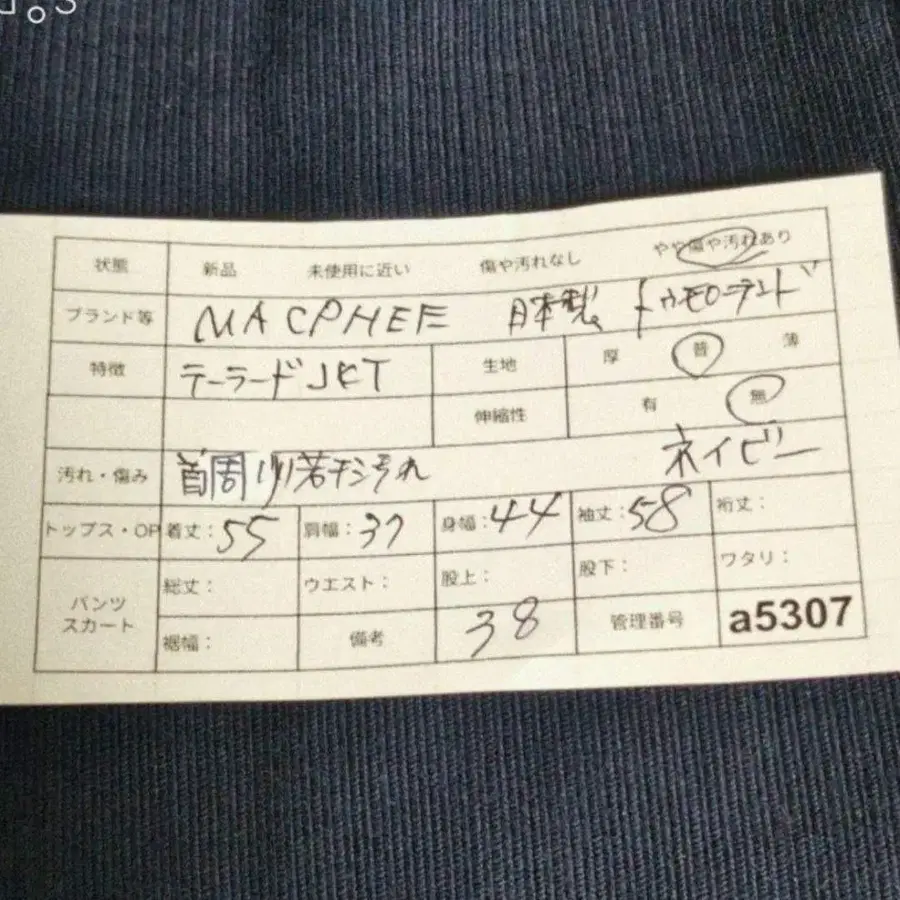 状態 新品 未使用に近い 傷や汚れなし やや傷や汚れあり
ブランド等 MACPHEE 日本製 トゥモローランド
特徴 テーラードJKT 生地 厚 普 薄
伸縮性 有 無
汚れ・傷み 首周り若干汚れ ネイビー
トップス・OP 着丈:55 肩幅:37 身幅:44 袖丈:58 裄丈:
パンツ スカート 総丈: ウエスト: 股上: 股下: ワタリ:
裾幅: 備考 38 管理番号 a5307